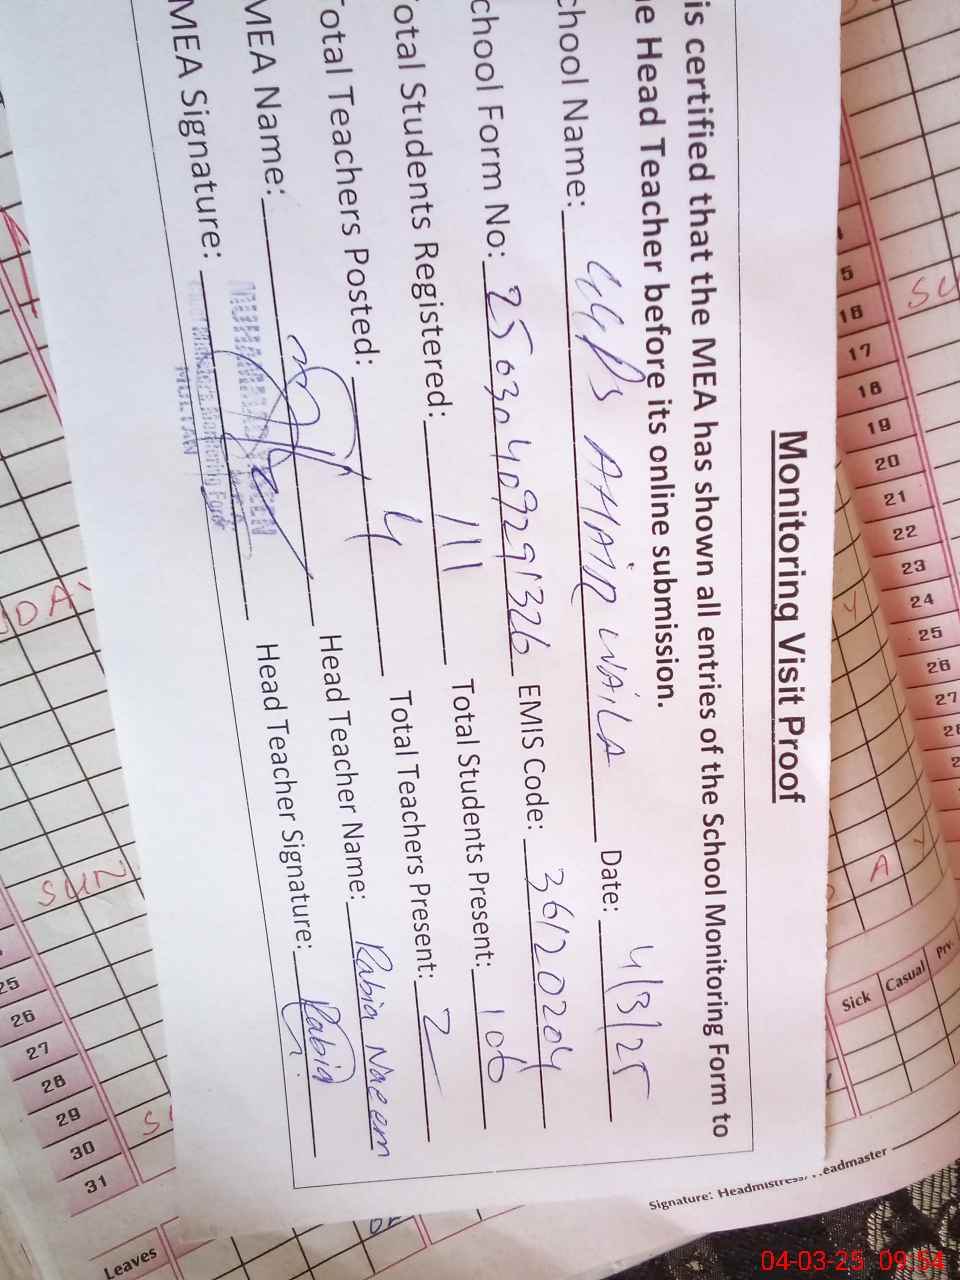 Monitoring Visit Proof
is certified that the MEA has shown all entries of the School Monitoring Form to
e Head Teacher before its online submission.
chool Name: GGPS AHAIR WAILA Date: 4/3/25
chool Form No: EMIS Code: 36120204
otal Students Registered: 111 Total Students Present: 106
otal Teachers Posted: 4 Total Teachers Present: 2
MEA Name: Head Teacher Name: Rabia Naeem
MEA Signature: Head Teacher Signature: Rabia
MULTAN
5
16
17
18
19
20
21
22
23
24
25
26
27
SU
Y
A
Sick
Casual
Prv.
Signature: Headmistress/ Headmaster
DA
SUN
25
26
27
28
29
30
31
Leaves
04-03-25 09:54